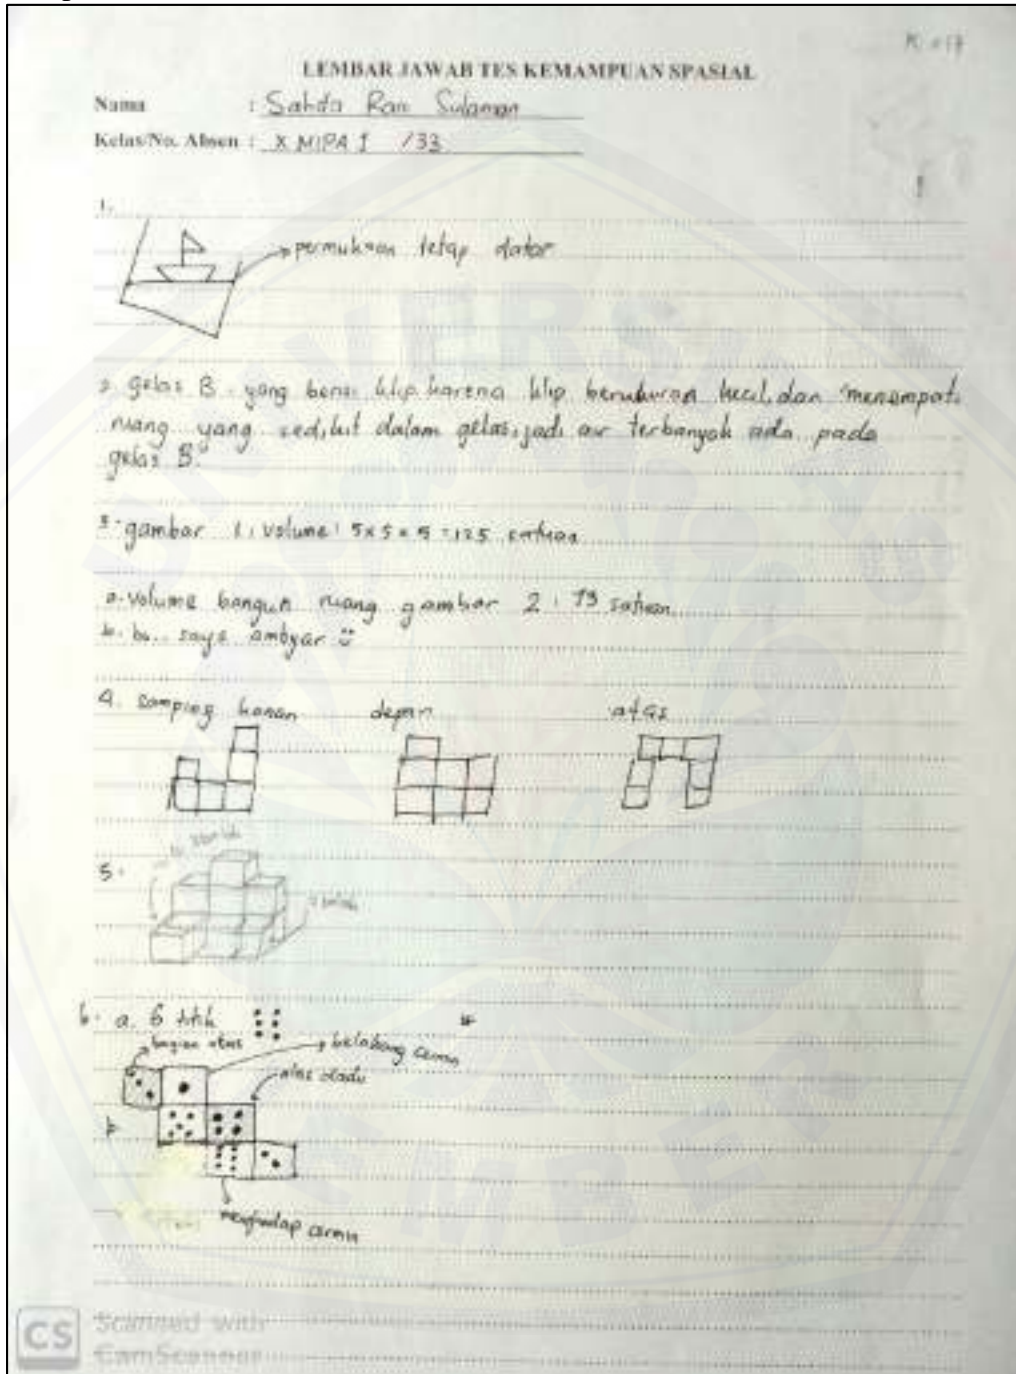 LEMBAR JAWAB TES KEMAMPUAN SPASIAL
Nama : Sahda Rani Sulaman
Kelas/No. Absen : X MIPA 1 /33
1.
permukaan tetap datar
2. gelas B. yang berisi klip karena klip berukuran kecil, dan menempati
ruang yang sedikit dalam gelas, jadi air terbanyak ada pada
gelas B.
3. gambar 1. volume: 5x5x5 = 125 satuan
a. volume bangun ruang gambar 2 : 73 satuan
b. bu.. saya ambyar
4. samping kanan depan atas
5.
6. a. 6 titik
bagian atas
belakang cermin
alas dadu
menghadap cermin
CS Scanned with
CamScanner